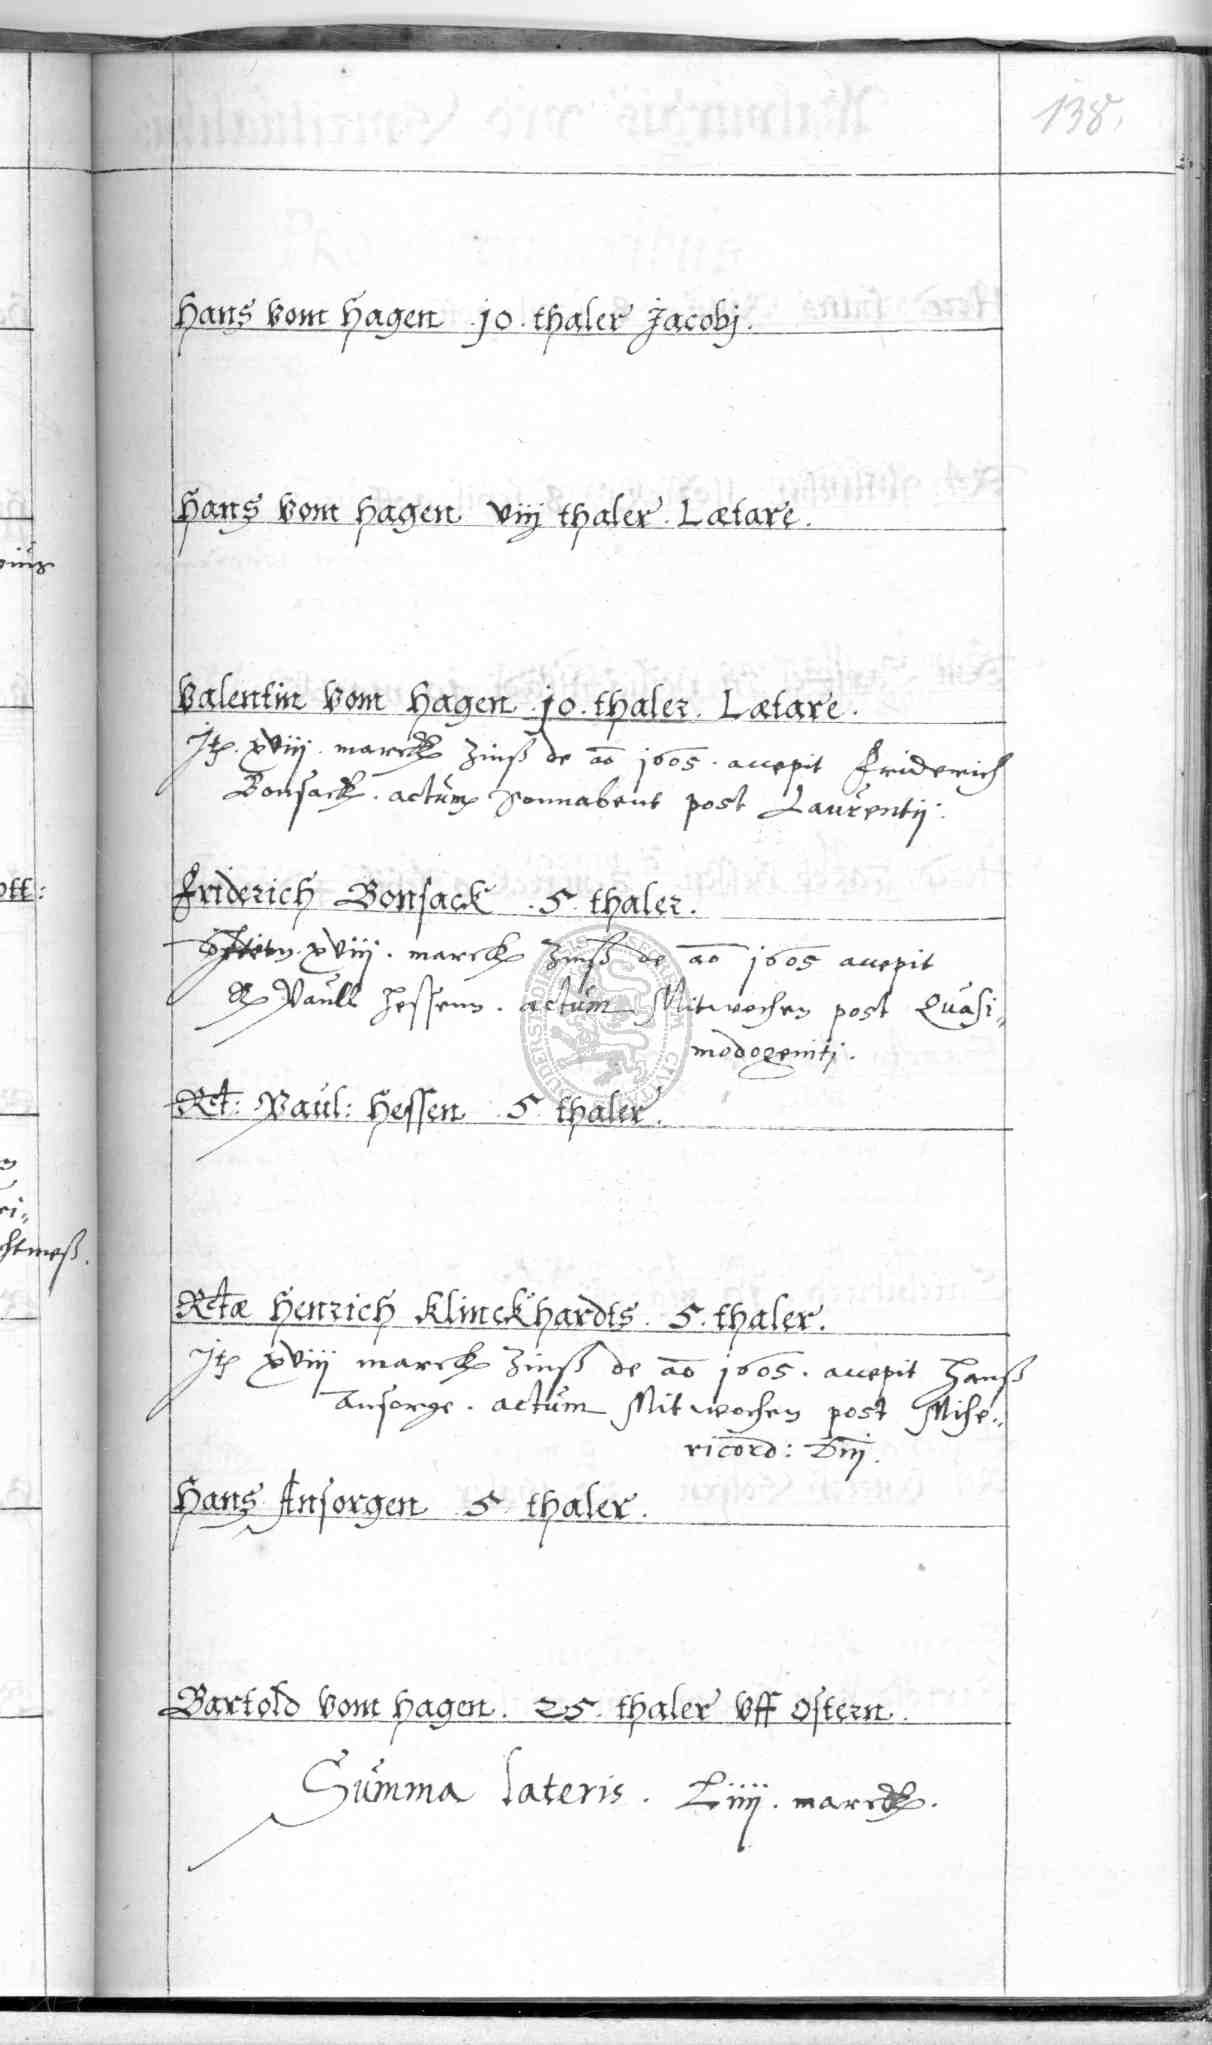 138.
Hans vom Hagen .jo. thaler Jacobj.
Hans vom Hagen viij thaler. Lætare.
Valentin vom Hagen .jo. thaler. Lætare.
Itē. xviij. marck Zinß de aō 1605. accepit Friderich
Bonsack. actum Sonnabent post Laurentij.
Friderich Bonsack .5. thaler.
xviij. marck Zinß de aō 1605 accepit
Paull Hessenn. actum Mitwochen post Quasi„
modogeniti.
Rct: Paul: Hessen .5. thaler.
Rctæ Henrich Klinckhardts. 5. thaler.
Itē xviij marck Zinß de aō 1605. accepit Hanß
Ansorge. actum Mitwochen post Mise„
ricord: Dnj.
Hans Ansorgen .5. thaler.
Bartold vom Hagen. 25. thaler vff Ostern.
Summa lateris. Liiij. marck.
ott:
chtmeß.